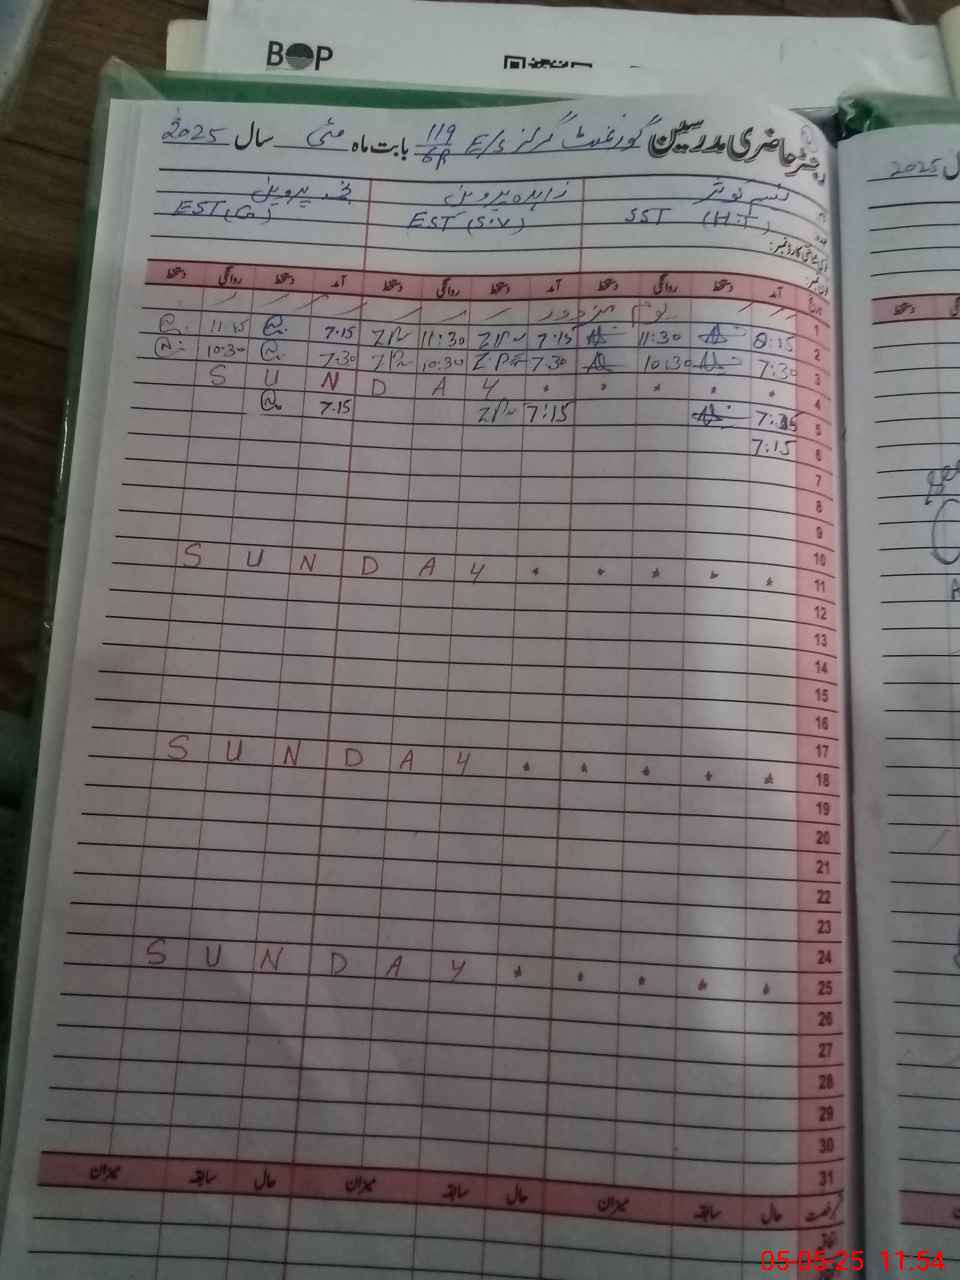 BOP
رجسٹر حاضری مدرسین گورنمنٹ گرلز E/S 119/6R بابت ماہ مئی سال 2025
2025
نسیم کوثر زاہدہ پروین نجمہ پروین
عہدہ SST (H.T) EST (S.V) EST (Co)
تاریخ آمد دستخط روانگی دستخط آمد دستخط روانگی دستخط آمد دستخط روانگی دستخط
1 یوم مزدور
2 8:15 11:30 7:15 ZP 11:30 ZP 7.15 11:15
3 7:30 10:30 7.30 Z.P 10:30 ZP 7.30 10:30
4 S U N D A Y
5 7:15 7:15 ZP 7.15
6 7:15
7
8
9
10
11 S U N D A Y
12
13
14
15
16
17
18 S U N D A Y
19
20
21
22
23
24
25 S U N D A Y
26
27
28
29
30
31
رخصت حال سابقہ میزان حال سابقہ میزان حال سابقہ میزان
05-05-25 11:54